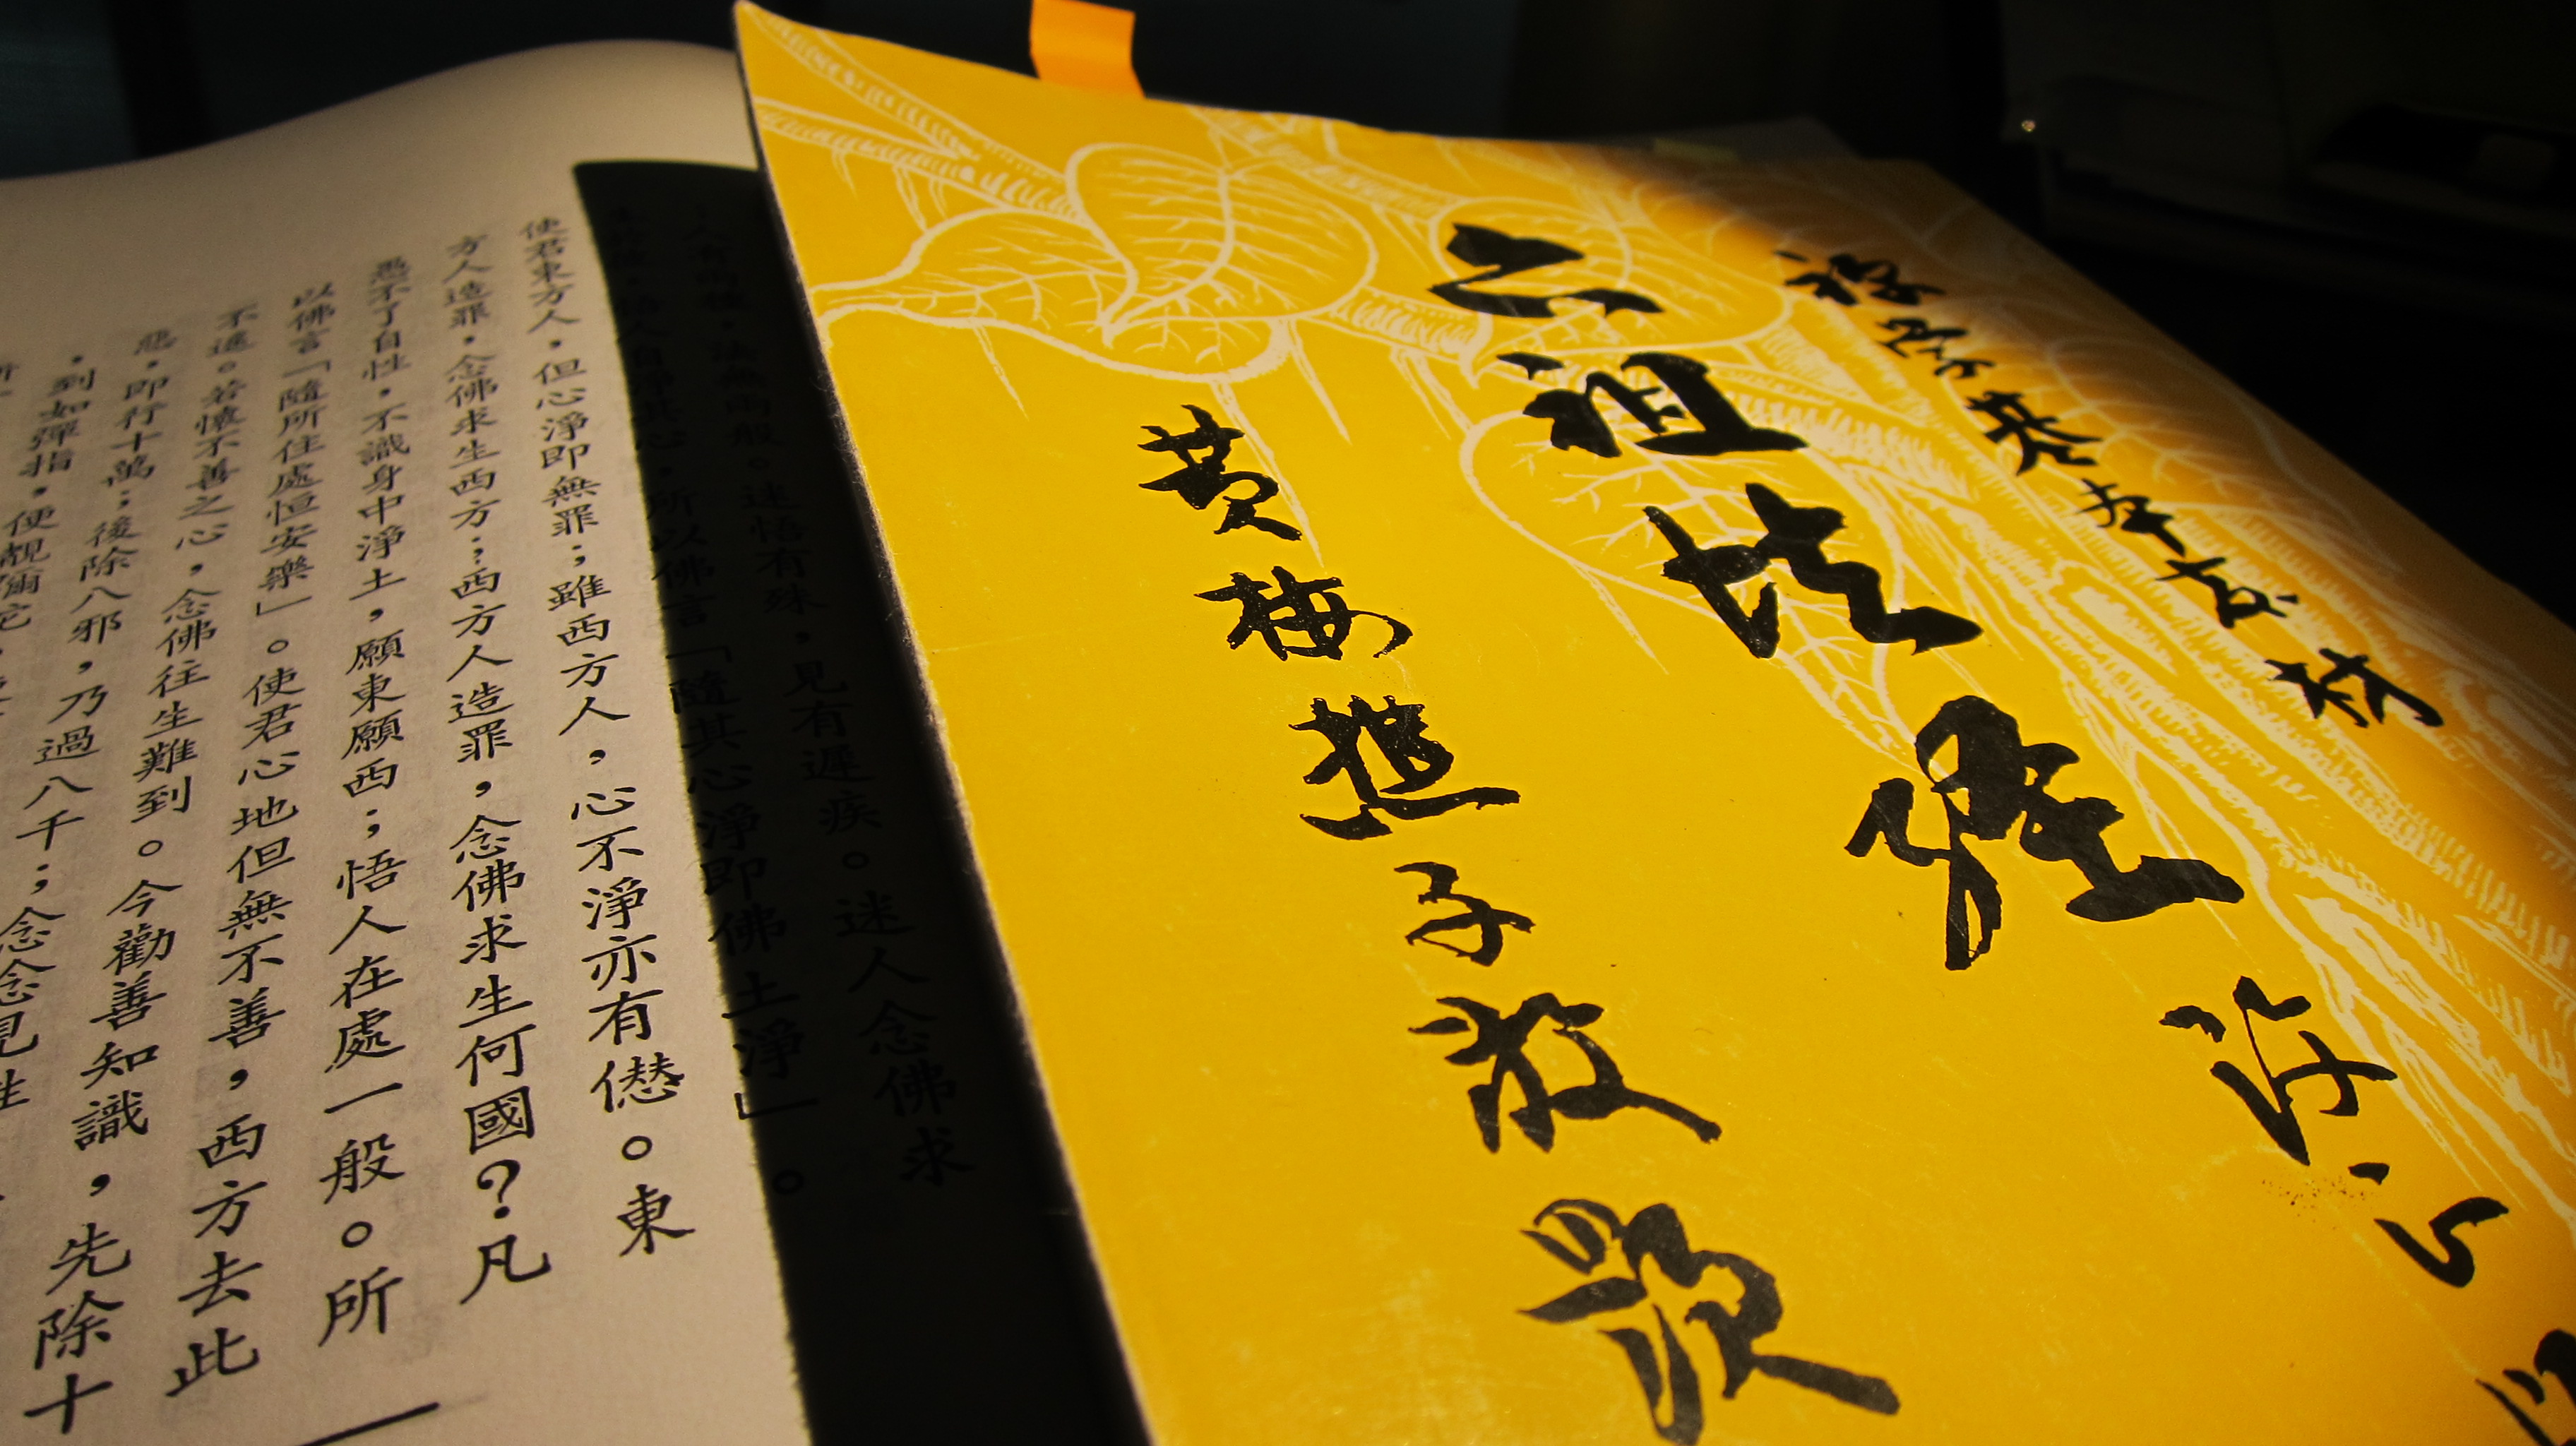 禪學基本教材
六祖法
黃梅樵子敬
人有兩種，法無兩般。迷悟有殊，見有遲疾。迷人念佛求
生於彼，悟人自淨其心，所以佛言「隨其心淨即佛土淨」。
使君東方人，但心淨即無罪；雖西方人，心不淨亦有僁。東
方人造罪，念佛求生西方；西方人造罪，念佛求生何國？凡
愚不了自性，不識身中淨土，願東願西；悟人在處一般。所
以佛言「隨所住處恒安樂」。使君心地但無不善，西方去此
不遠。若懷不善之心，念佛往生難到。今勸善知識，先除十
惡，即行十萬；後除八邪，乃過八千；念念見性
，到如彈指，便覩彌陀